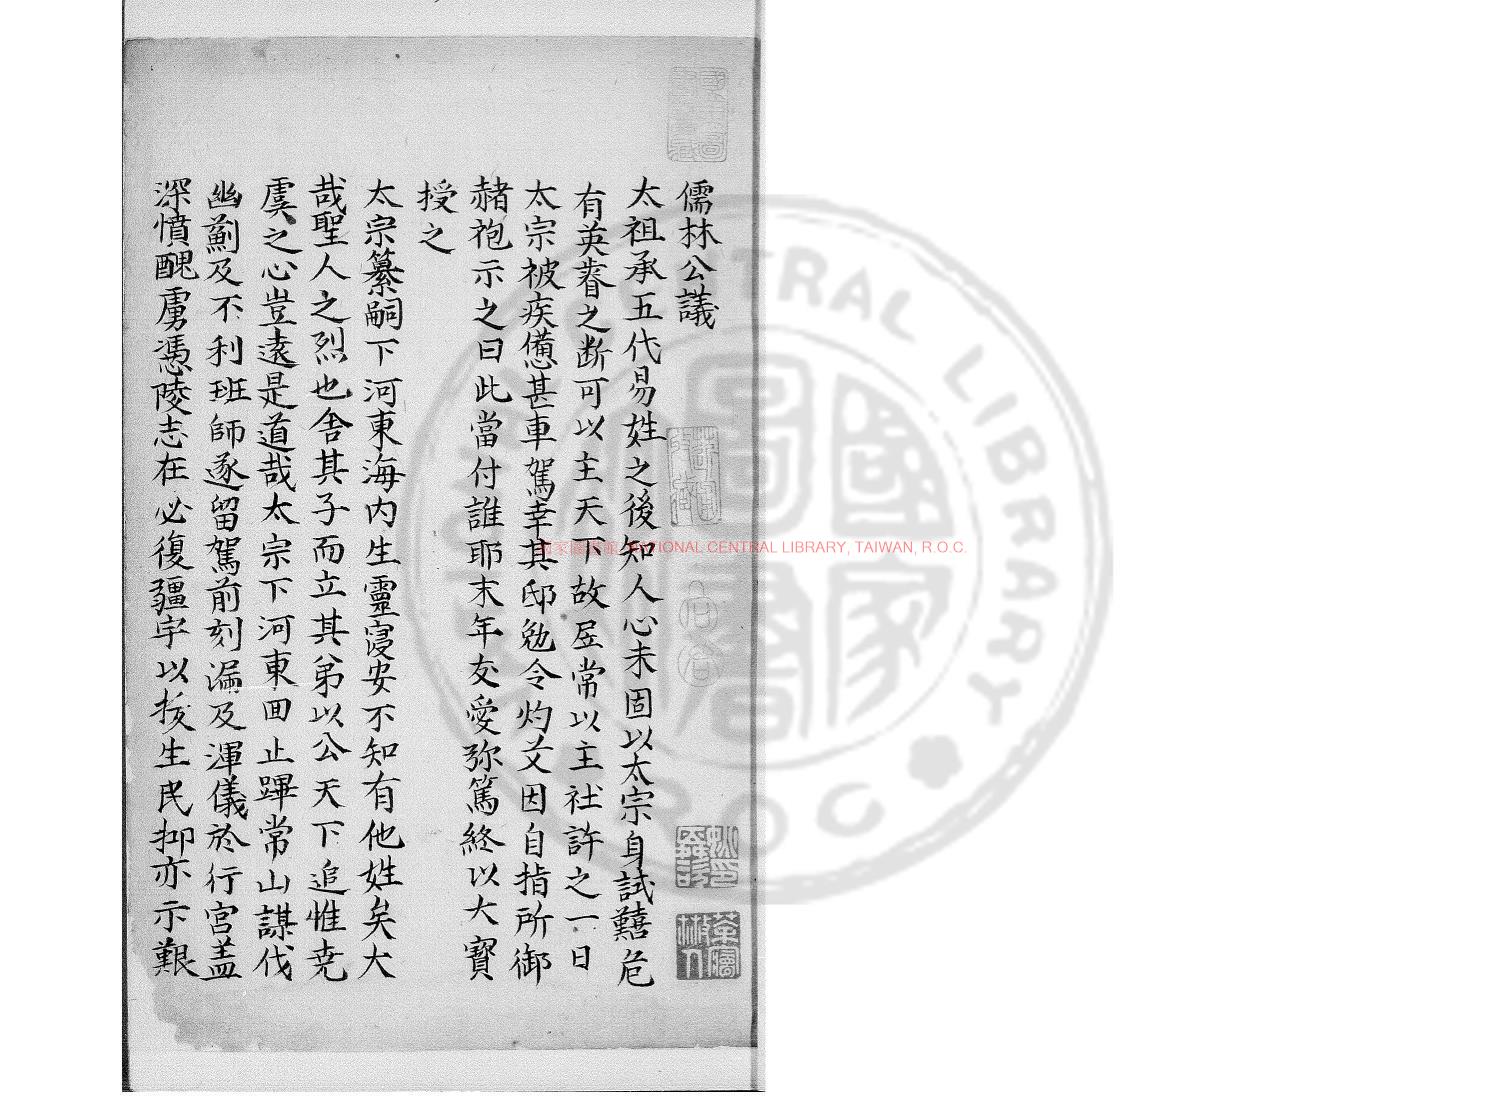 儒林公議
太祖承五代易姓之後知人心未固以太宗身試囏危
有英睿之断可以主天下故居常以主社許之一日
太宗被疾憊甚車駕幸其邸勉令灼艾因自指所御
赭袍示之曰此當付誰耶末年友愛弥篤終以大寳
授之
太宗纂嗣下河東海内生靈寖安不知有他姓矣大
哉聖人之烈也舍其子而立其弟以公天下追惟尭
虞之心豈遠是道哉太宗下河東回止蹕常山謀伐
幽薊及不利班師遂留駕前刻漏及渾儀於行宮盖
深憤醜虜憑陵志在必復疆宇以援生民抑亦示艱
國家圖書館 NATIONAL CENTRAL LIBRARY, TAIWAN, R.O.C.
NATIONAL CENTRAL LIBRARY
R.O.C
國家圖書